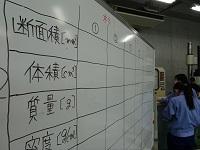 ①
断面積[cm²]
体積[cm³]
質量[g]
密度[g/cm³]